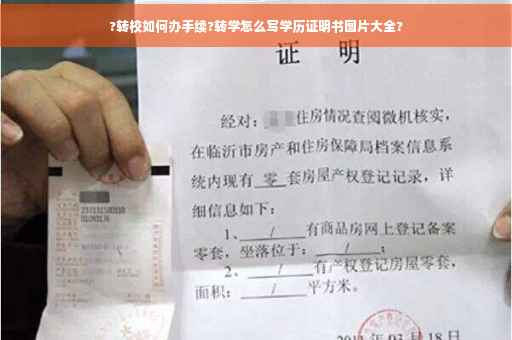 ?转校如何办手续?转学怎么写学历证明书图片大全?
证 明
经对: 住房情况查阅微机核实,
在临沂市房产和住房保障局档案信息系
统内现有 零 套房屋产权登记记录,详
细信息如下:
1、 / 有商品房网上登记备案
零套,坐落位于: / ;
2、 / 有产权登记房屋零套,
面积: / 平方米。
03月18日